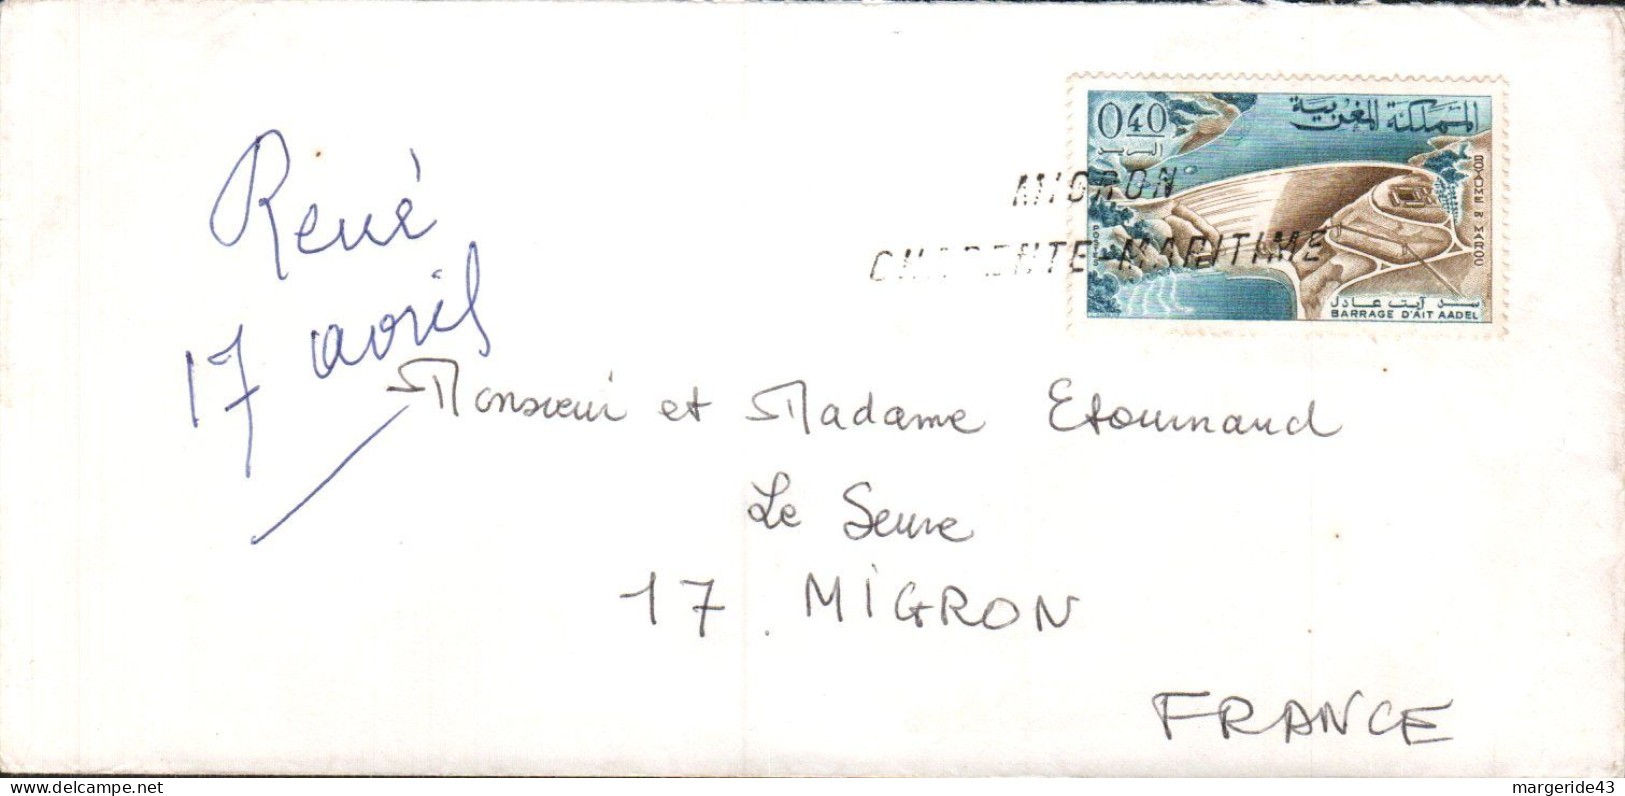 René
17 avril
0.40
المملكة المغربية
ROYAUME DU MAROC
سد آيت عادل
BARRAGE D'AIT AADEL
MIGRON
CHARENTE-MARITIME
Monsieur et Madame Etournaud
Le Seure
17 MIGRON
FRANCE
delcampe.net
margeride43